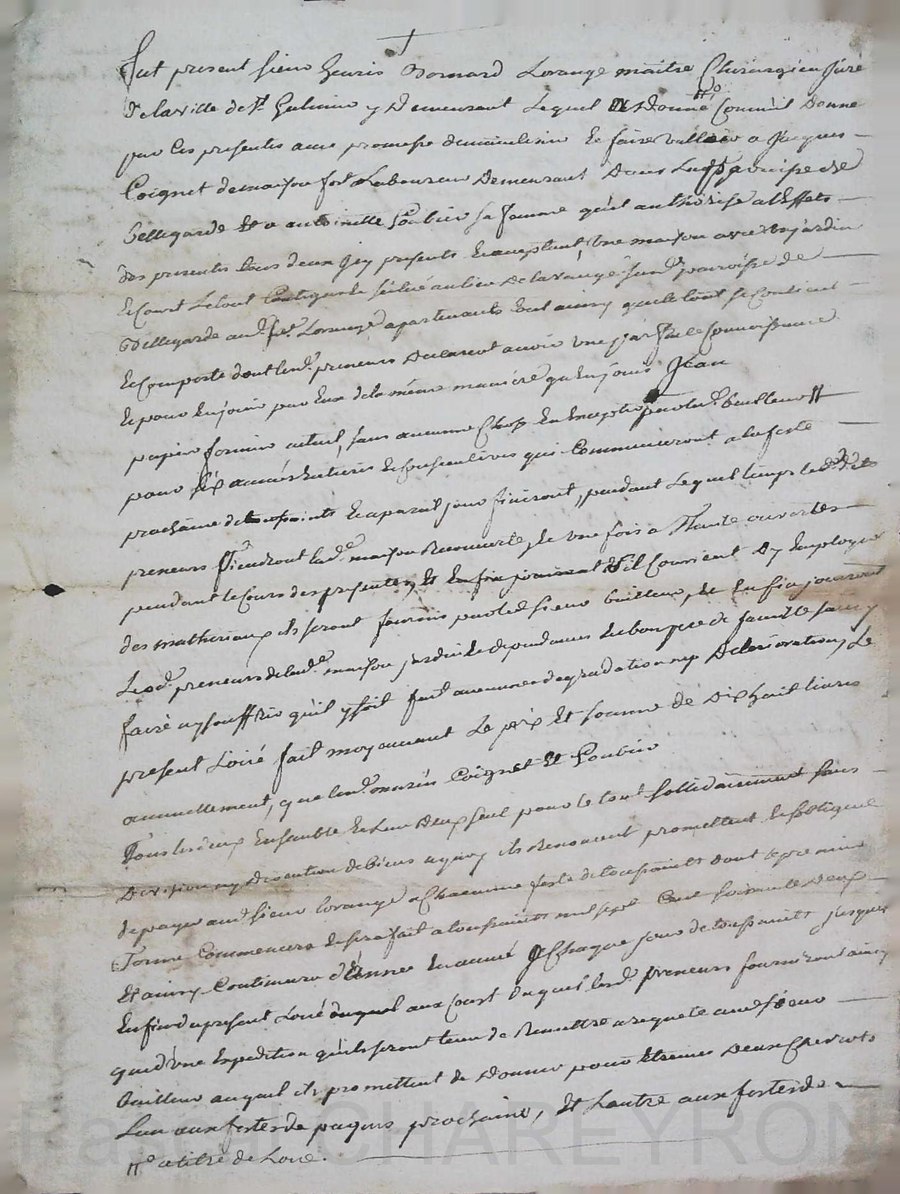 fut present sieur Henris Bernard Lorange maitre Chirurgien Juré
de la ville de St Galmier y Demeurant Lequel a Donné Comme il Donne
par Ces presentes avec promesse de maintenir et faire valloir a Jacques
Coignet de maison fort Laboureur Demeurant Dans La paroisse de
Bellegarde et a antoinette Poubier sa femme qu'il authorise a l'Effets
des presentes tous deux Jcy presents Et acceptant, Une maison avec Un jardin
et Court Le tout Contigus situé au lieu de la vange paroisse de
Bellegarde aud. sr. Lorange apartenants tout ainsy que le tout se Contient
Et Comporte dont lesd. preneurs Declarent avoir une parfaite Connoissance
Et pour En jouir par Eux de la méme maniere qu'En jouis Jean
papier fermier actuel, sans aucune Chose En Excepter par led. bailleur
pour six années Entieres et Consecutives qui Commenceront a la feste
prochaine de toussaints Et a pareil jour finiront, pendant Lequel temps lesd.
preneurs tiendront lad. maison Recouverte, de une fois a Haute ouvertes
pendant le Cours des presentes, et s'il Convient D'y Employer
des matheriaux ils seront fournis par led. sieur bailleur, et En fin jouiront
Lesd. preneurs de lad. maison jardin Et dependances En bon pere de famille sans y
faire ny souffrir qu'il y soit fait aucunes degradations ny Deteriorations, Le
present Loué fait moyennant Le prix Et somme de Dix huit livres
annuellement, que lesd. mariés Coignet et Poubier
Tous les deux Ensemble Et L'un Deux seul pour le tout sollidairement sans
Division ny Discution de biens a quoy ils Renoncent promettent Et sobligent
de payer aud. sieur Lorange a Chacunne feste de toussaints dont le premier
Terme Commencera Et sera fait a toussaints mil sept Cent soixante Deux
Et ainsy Continuera d'année En année a Chaque jour de toussaints jusques
En fin du present Loué auquel lesd. preneurs fourniront ainsy
que d'une Expedition qu'ils seront tenu de Remettre a requete aud. sieur
bailleur auquel ils promettent de Donner pour Etrennes Deux Chevrots
L'un aux festes de paques prochaine, Et L'autre aux festes de
a titre de Loué.
Raphaël CHAREYRON